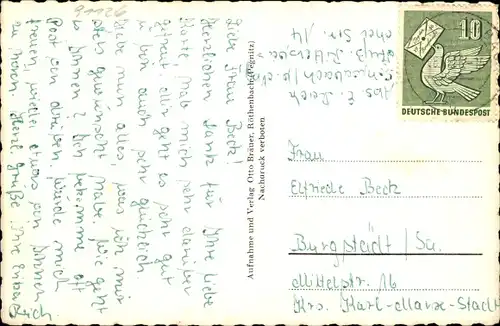 Liebe Frau Beck!
Herzlichen Dank für Ihre liebe
Karte hab mich sehr darüber
gefreut. Mir geht es sehr gut
u. bin auch sehr glücklich
habe nun alles, was ich mir
gewünscht habe. Wie geht
es Ihnen? Ich bekomme oft
Post von drüben. Würde mich
freuen, wieder etwas von Ihnen
zu hören. Herzl. Grüße Ihre
Abs. E.
Aufnahme und Verlag Otto Bräuer, Röthenbach (Pegnitz)
Nachdruck verboten
10
DEUTSCHE BUNDESPOST
Frau
Elfriede Beck
Burgstädt/Sa.
Mittelstr. 16
Krs. Karl-Marx-Stadt